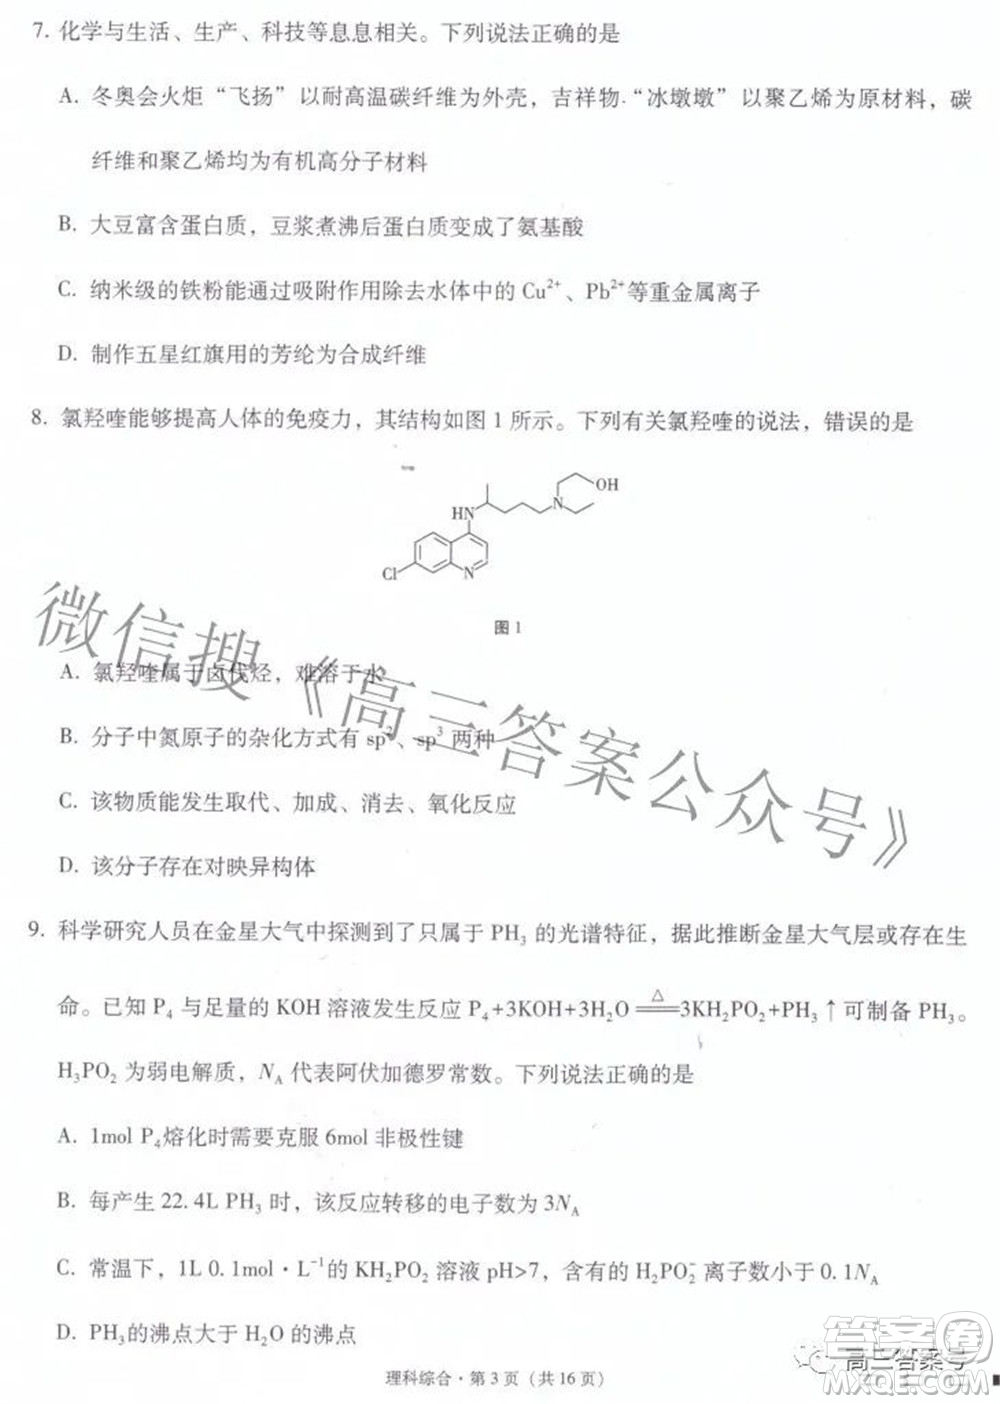 7. 化学与生活、生产、科技等息息相关。下列说法正确的是
A. 冬奥会火炬“飞扬”以耐高温碳纤维为外壳，吉祥物“冰墩墩”以聚乙烯为原材料，碳
纤维和聚乙烯均为有机高分子材料
B. 大豆富含蛋白质，豆浆煮沸后蛋白质变成了氨基酸
C. 纳米级的铁粉能通过吸附作用除去水体中的 Cu²⁺、Pb²⁺等重金属离子
D. 制作五星红旗用的芳纶为合成纤维
8. 氯羟喹能够提高人体的免疫力，其结构如图 1 所示。下列有关氯羟喹的说法，错误的是
OH
N
HN
Cl
N
图 1
A. 氯羟喹属于卤代烃，难溶于水
B. 分子中氮原子的杂化方式有 sp²、sp³ 两种
C. 该物质能发生取代、加成、消去、氧化反应
D. 该分子存在对映异构体
微信搜《高三答案公众号》
9. 科学研究人员在金星大气中探测到了只属于 PH₃ 的光谱特征，据此推断金星大气层或存在生
命。已知 P₄ 与足量的 KOH 溶液发生反应 P₄+3KOH+3H₂O ══△══ 3KH₂PO₂+PH₃↑可制备 PH₃。
H₃PO₂ 为弱电解质，N_A 代表阿伏加德罗常数。下列说法正确的是
A. 1mol P₄熔化时需要克服 6mol 非极性键
B. 每产生 22.4L PH₃ 时，该反应转移的电子数为 3N_A
C. 常温下，1L 0.1mol·L⁻¹的 KH₂PO₂ 溶液 pH>7，含有的 H₂PO₂⁻ 离子数小于 0.1N_A
D. PH₃的沸点大于 H₂O 的沸点
理科综合·第 3 页（共 16 页）
高三答案号
答案圈